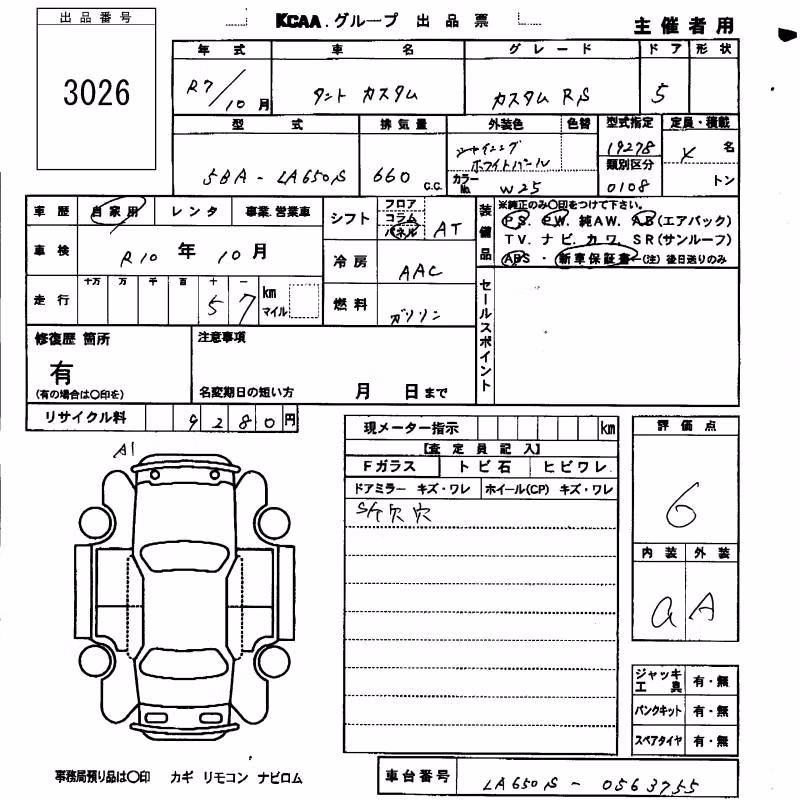 出品番号
3026
KCAA.グループ 出品票
主催者用
年式 車名 グレード ドア 形状
R7/10月 タント カスタム カスタム RS 5
型式 排気量 外装色 色替 型式指定 定員・積載
5BA-LA650S 660 C.C. シャイニング ホワイトパール 19278 名
類別区分
カラーNo. W25 0108 トン
車歴 自家用 レンタ 事業.営業車
シフト フロア コラム パネル AT
装備品 ※純正のみ〇印をつけて下さい。
PS. PW. 純AW. AB(エアバック)
TV. ナビ. カワ. SR(サンルーフ)
ABS・新車保証書←(注)後日送りのみ
車検 R10年10月
冷房 AAC
走行 十万 万 千 百 十 一
57 km マイル
燃料 ガソリン
セールスポイント
修復歴 箇所
有
(有の場合は〇印を)
注意事項
名変期日の短い方 月 日まで
リサイクル料 9280円
現メーター指示 km
[査定員記入]
Fガラス トビ石 ヒビワレ.
ドアミラー キズ・ワレ ホイール(CP) キズ・ワレ
欠穴
A1
評価点
6
内装 外装
a A
ジャッキ工具 有・無
パンクキット 有・無
スペアタイヤ 有・無
事務局預り品は〇印 カギ リモコン ナビロム
車台番号 LA650S-0563755